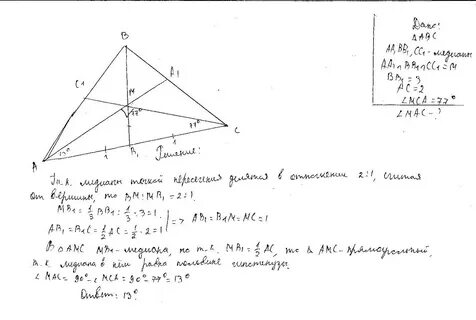 Дано:
△ABC
AA₁, BB₁, CC₁ - медианы
AA₁∩BB₁∩CC₁=M
BB₁=3
AC=2
∠MCA=77°
∠MAC-?
B
C1
A1
M
77°
77°
C
A
13°
1
B₁
1
Решение:
Т.к. медианы точкой пересечения делятся в отношении 2:1, считая
от вершины, то BM:MB₁=2:1.
MB₁=1/3 BB₁=1/3·3=1.
=> AB₁=B₁M=MC=1
AB₁=B₁C=1/2 AC=1/2·2=1
В △AMC MB₁-медиана, но т.к. MB₁=1/2 AC, то △ AMC-прямоугольный,
т.к. медиана в нём равна половине гипотенузы.
∠MAC=90°-∠MCA=90°-77°=13°
Ответ: 13°.